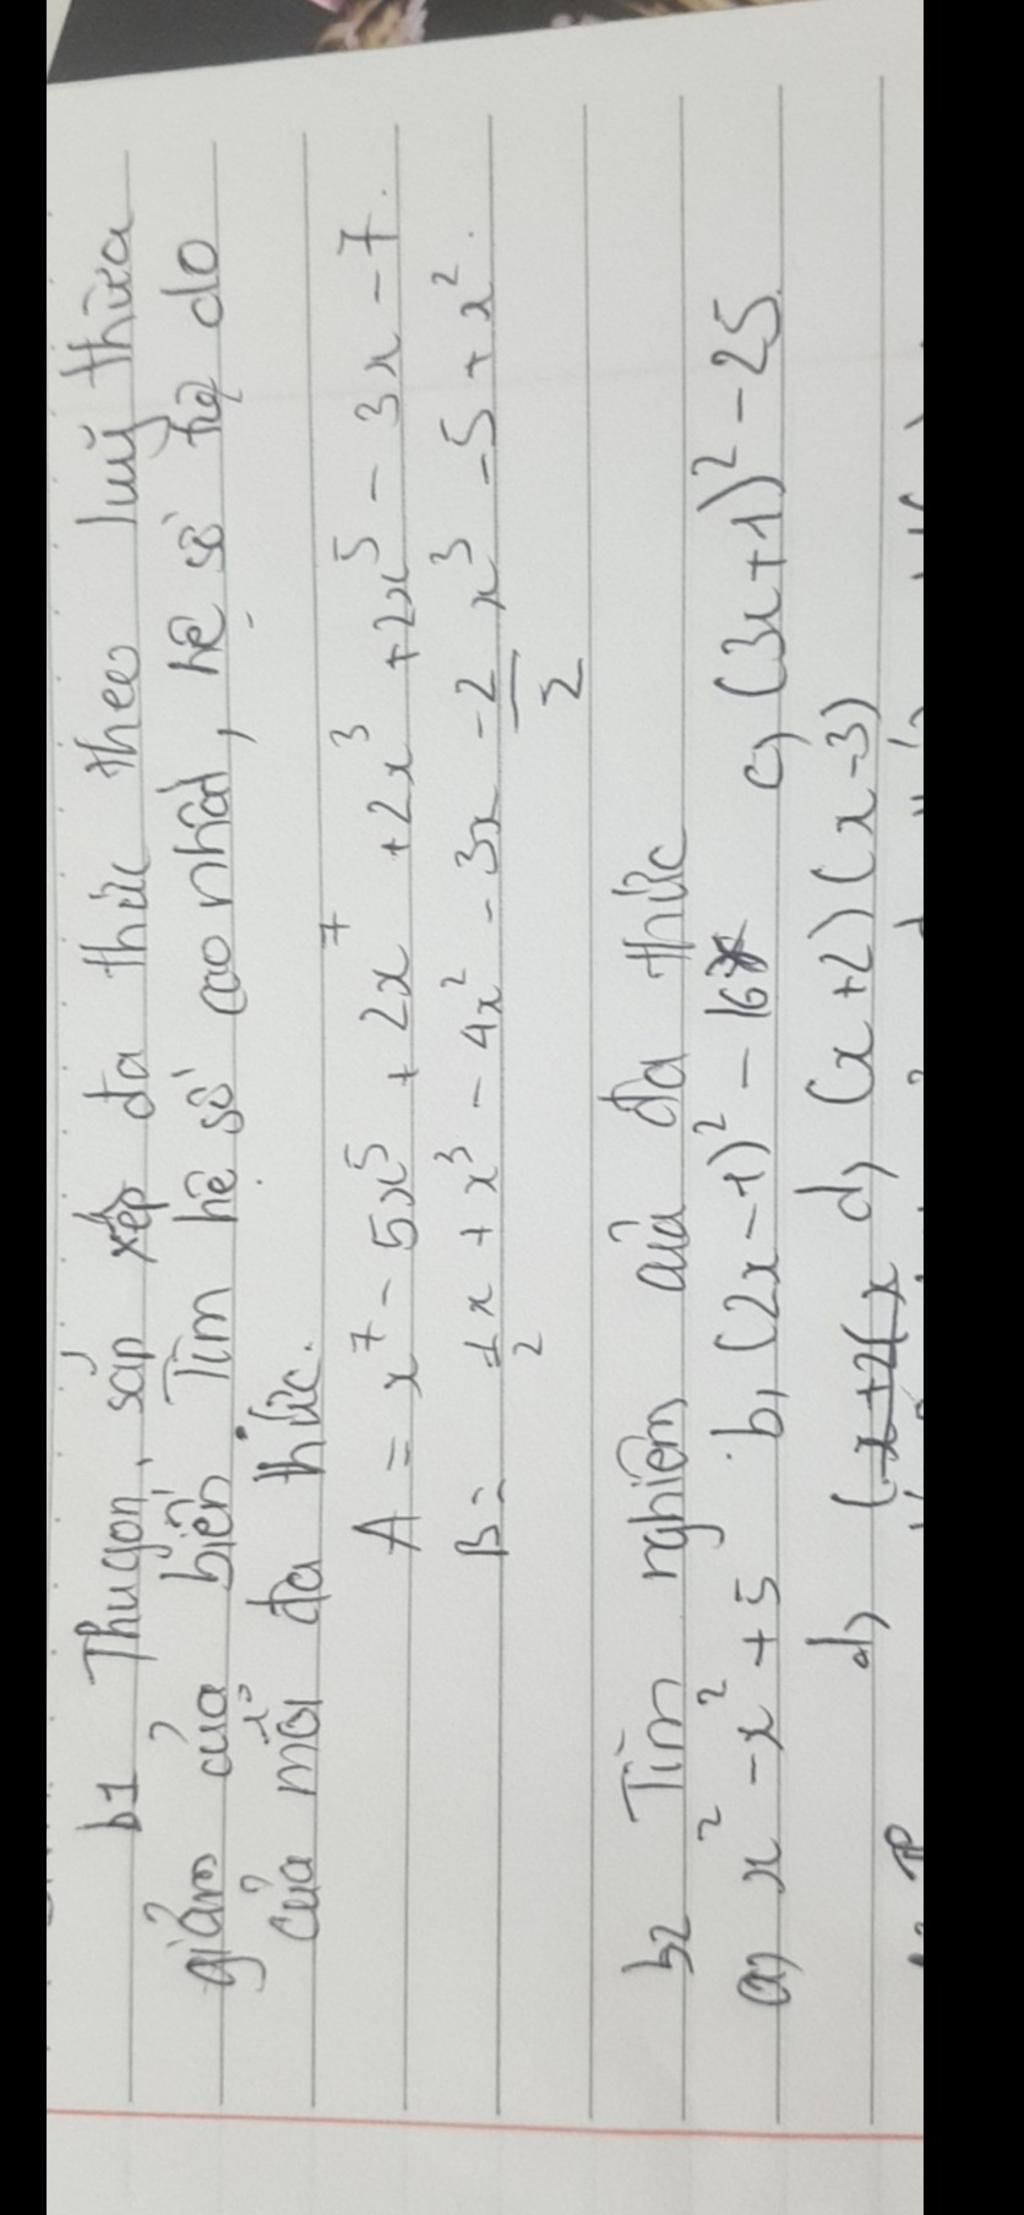 b1 Thu gọn, sắp xếp đa thức theo luỹ thừa
giảm của biến. Tìm hệ số cao nhất, hệ số tự do
của mỗi đa thức.
A = x⁷ - 5x⁵ + 2x⁷ + 2x³ + 2x⁵ - 3x - 7.
B = 1/2 x + x³ - 4x² - 3x - 2/2 x³ - 5 + x².
b2 Tìm nghiệm của đa thức
a) x² - x² + 5 b, (2x - 1)² - 16 c, (3x + 1)² - 25.
d, (x+2)(x d, (x + 2)(x - 3)